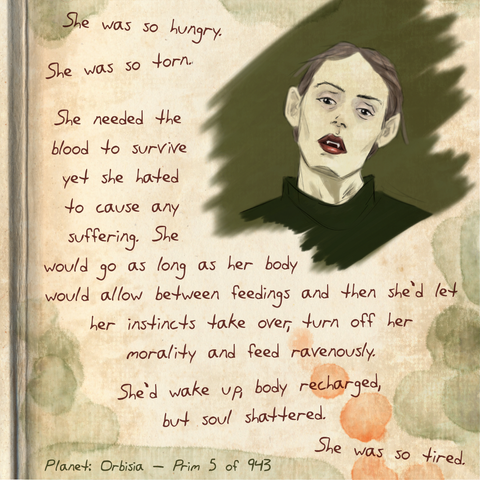 She was so hungry.
She was so torn.
She needed the
blood to survive
yet she hated
to cause any
suffering. She
would go as long as her body
would allow between feedings and then she'd let
her instincts take over, turn off her
morality and feed ravenously.
She'd wake up, body recharged,
but soul shattered.
She was so tired.
Planet: Orbisia — Prim 5 of 943